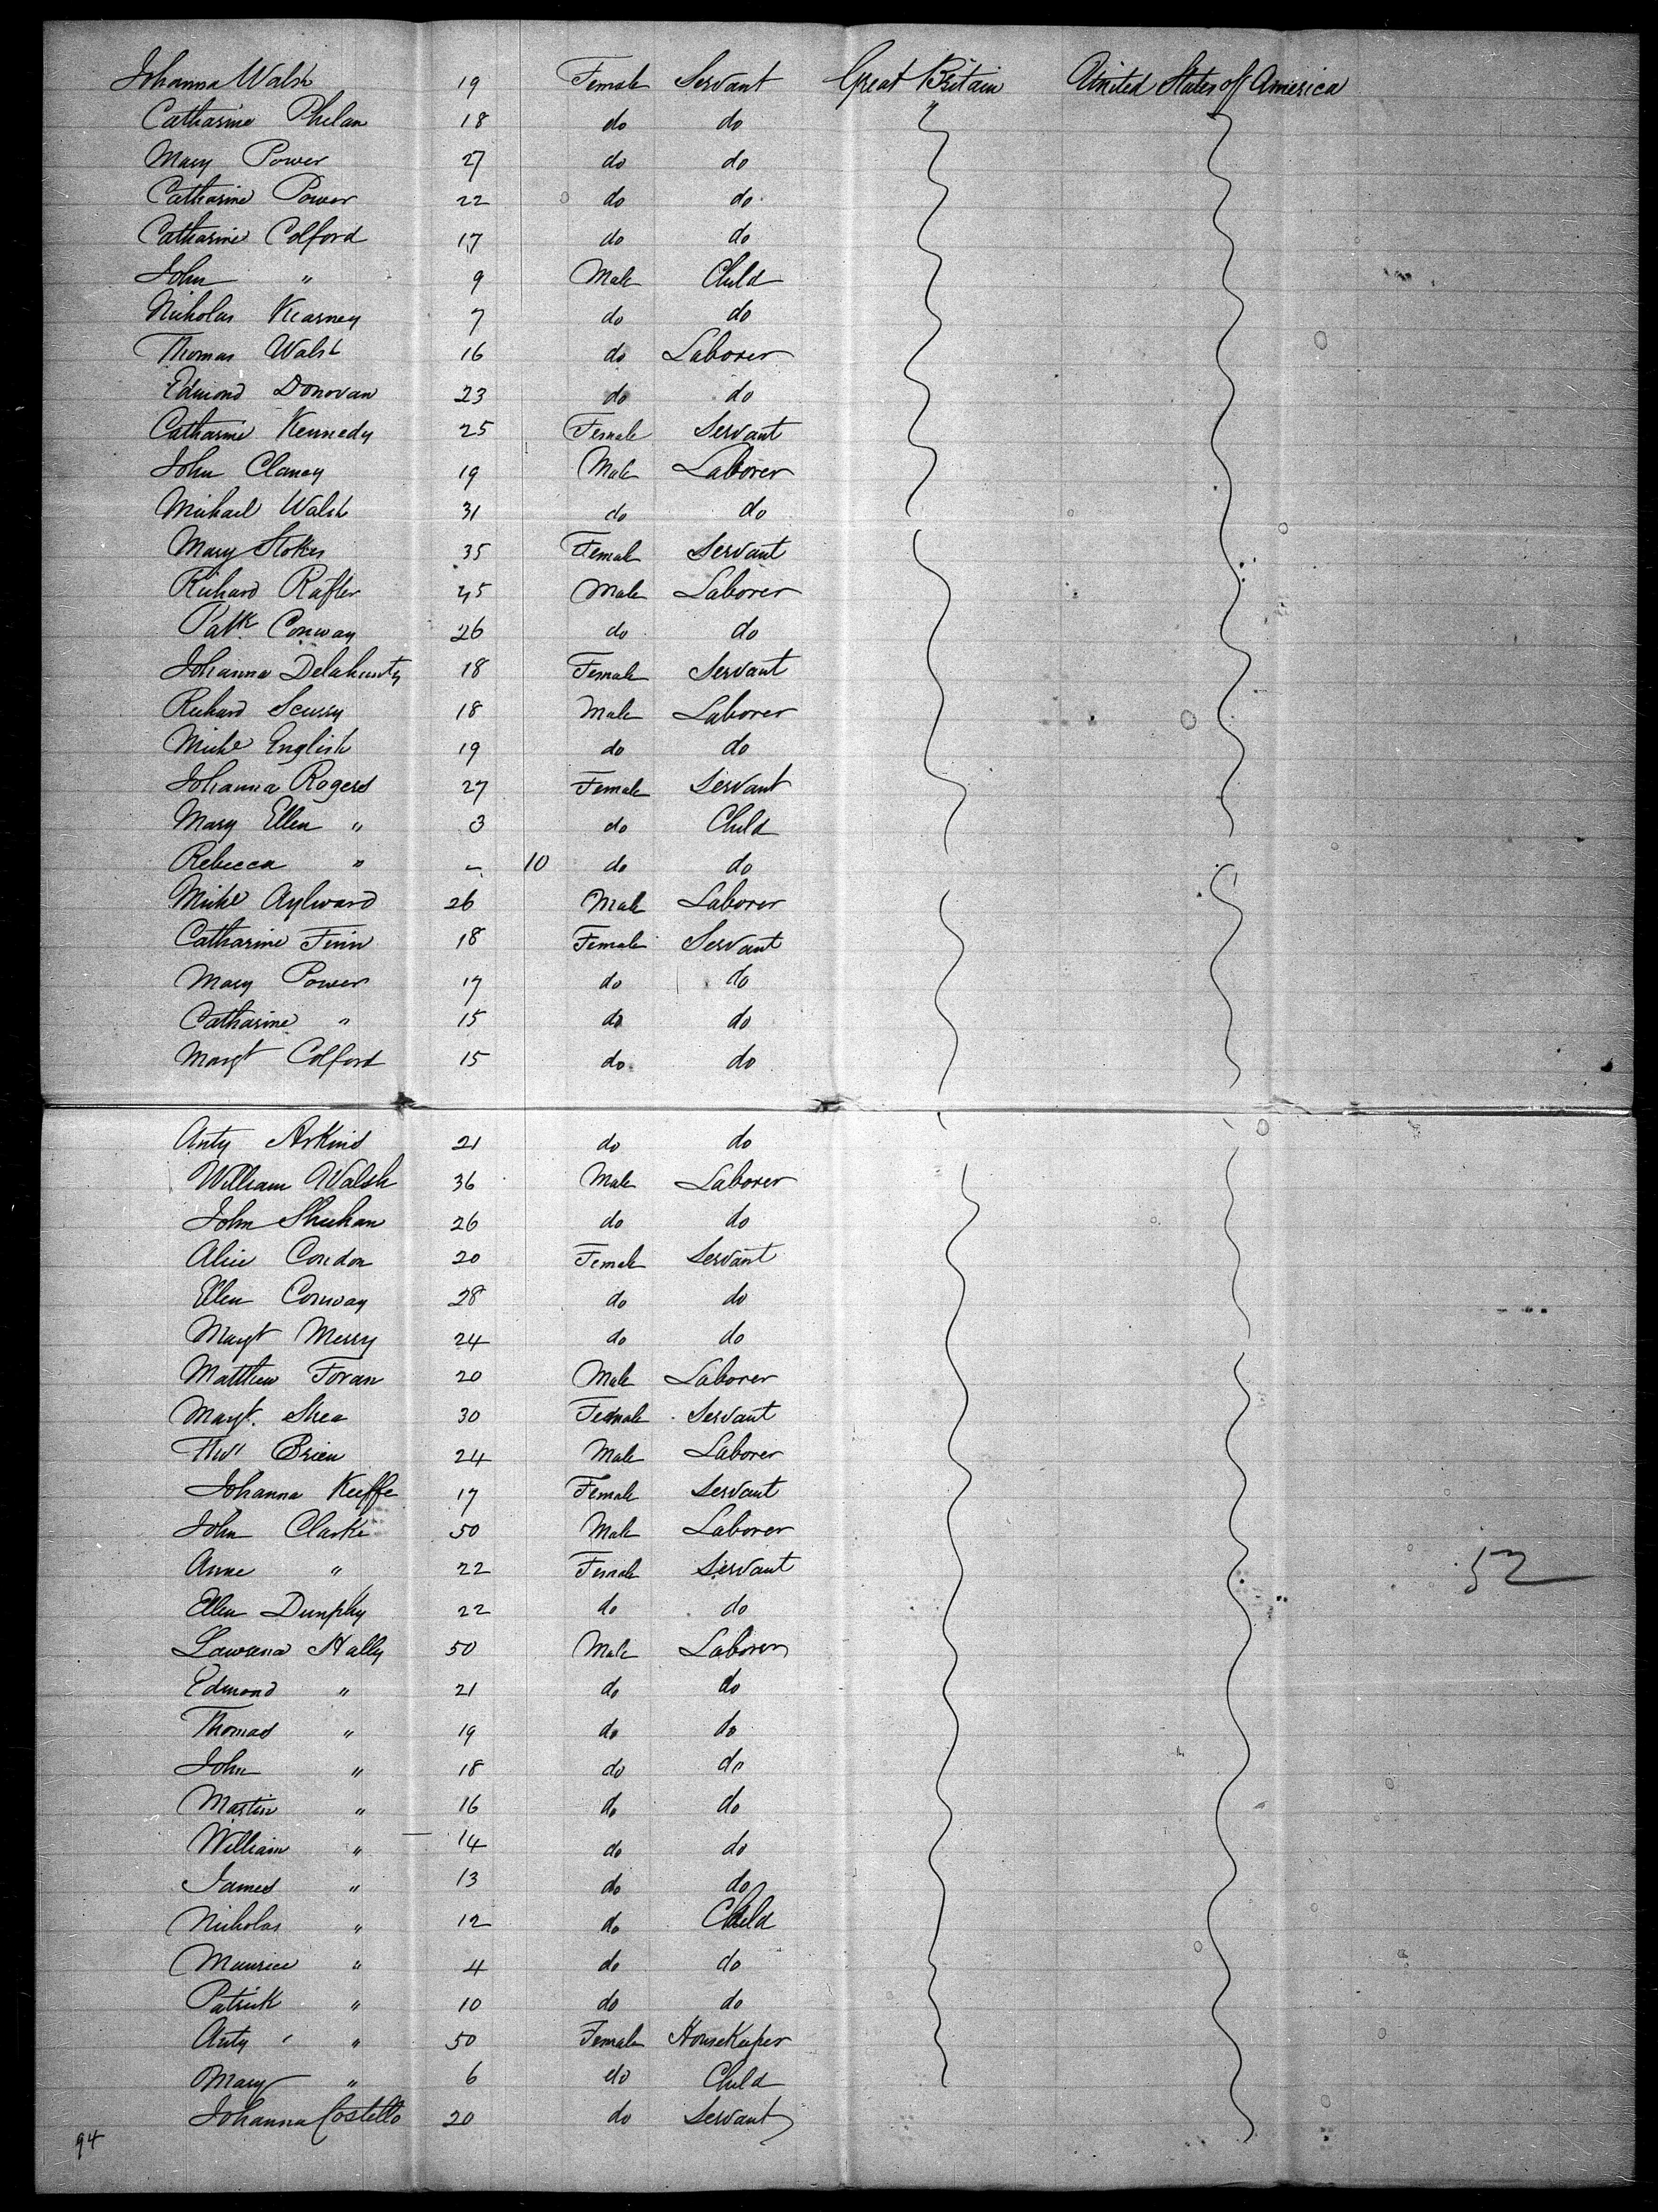 Johanna Walsh 19 Female Servant Great Britain United States of America
Catharine Phelan 18 do do "
Mary Power 27 do do
Catharine Power 22 do do
Catharine Colford 17 do do
John " 9 Male Child
Nicholas Kearney 7 do do
Thomas Walsh 16 do Laborer
Edmond Donovan 23 do do
Catharine Kennedy 25 Female Servant
John Clancy 19 Male Laborer
Michael Walsh 31 do do
Mary Stokes 35 Female Servant
Richard Rafter 45 Male Laborer
Patk Conway 26 do do
Johanna Delahunty 18 Female Servant
Richard Scurry 18 Male Laborer
Michl English 19 do do
Johanna Rogers 27 Female Servant
Mary Ellen " 3 do Child
Rebecca " - 10 do do
Michl Aylward 26 Male Laborer
Catharine Finn 18 Female Servant
Mary Power 17 do do
Catharine " 15 do do
Margt Colford 15 do do
Anty Arkins 21 do do
William Walsh 36 Male Laborer
John Sheehan 26 do do
Alice Condon 20 Female Servant
Ellen Conway 28 do do
Margt Merry 24 do do
Matthew Foran 20 Male Laborer
Margt. Shea 30 Female Servant
Brien 24 Male Laborer
Johanna Keeffe 17 Female Servant
John Clarke 50 Male Laborer
Anne " 22 Female Servant
52
Ellen Dunphy 22 do do
Lawrence Hally 50 Male Laborer
Edmond " 21 do do
Thomas " 19 do do
John " 18 do do
Martin " 16 do do
William " 14 do do
James " 13 do do
Nicholas " 12 do Child
Maurice " 4 do do
Patrick " 10 do do
Anty " 50 Female HouseKeeper
Mary " 6 do Child
Johanna Costello 20 do Servant
94